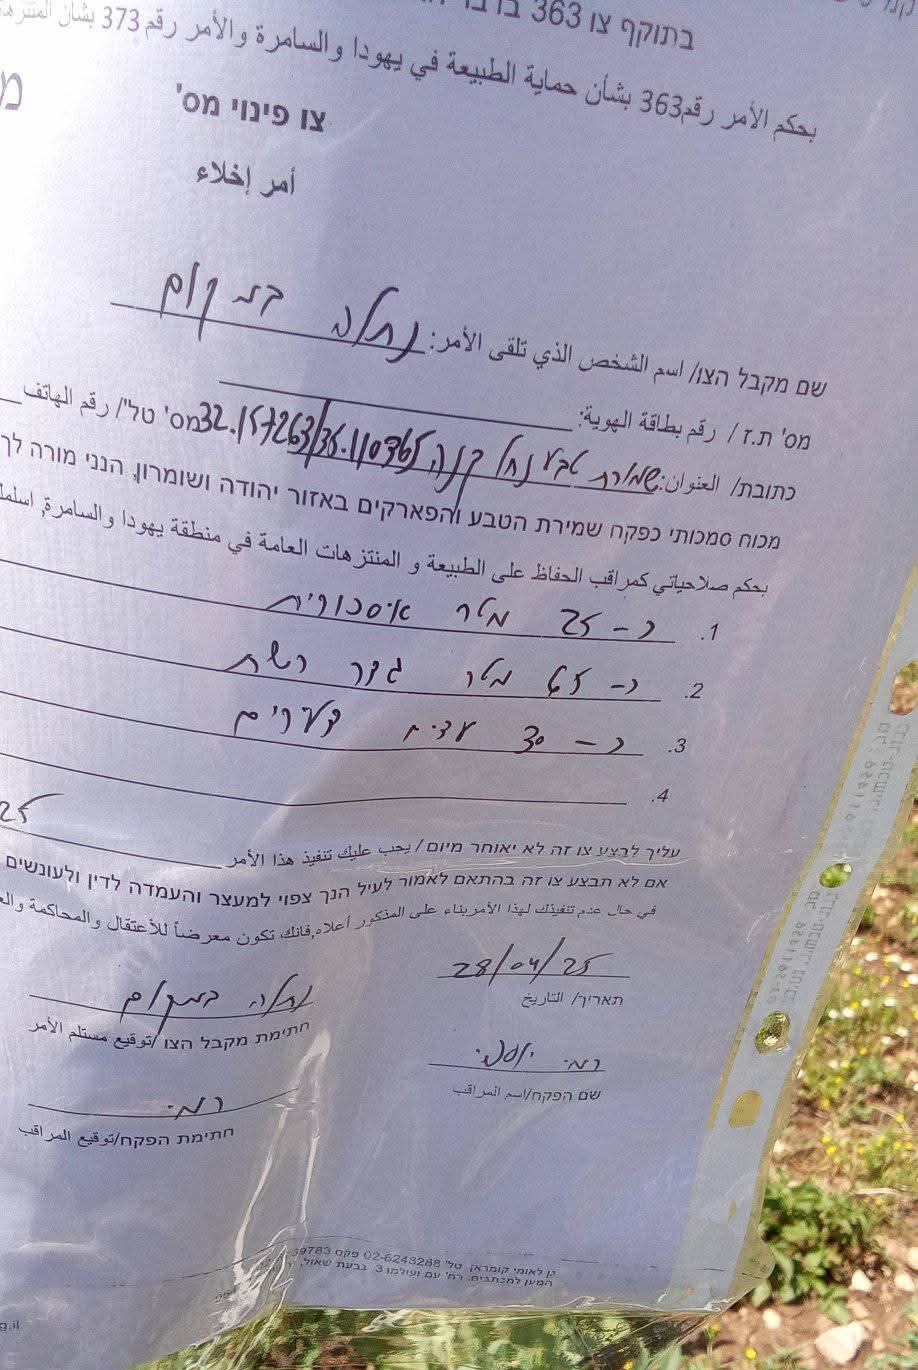 בתוקף צו 363
بحكم الأمر رقم363 بشأن حماية الطبيعة في يهودا والسامرة والأمر رقم 373 بشأن
צו פינוי מס'
أمر إخلاء
שם מקבל הצו/ اسم الشخص الذي تلقى الأمر: נתלה במקום
מס' ת.ז / رقم بطاقة الهوية:
כתובת/ العنوان: שמורת טבע נחל קנה 32.157263/35.110365 מס' טל'/ رقم الهاتف
מכוח סמכותי כפקח שמירת הטבע והפארקים באזור יהודה ושומרון, הנני מורה לך
بحكم صلاحياتي كمراقب الحفاظ على الطبيعة و المنتزهات العامة في منطقة يهودا والسامرة,
1. כ- 25 מטר איסכורית
2. כ- 65 מטר גדר רשת
3. כ- 30 עצים צעירים
4.
עליך לבצע צו זה לא יאוחר מיום / يجب عليك تنفيذ هذا الأمر
אם לא תבצע צו זה בהתאם לאמור לעיל הנך צפוי למעצר והעמדה לדין ולעונשים
في حال عدم تنفيذك لهذا الأمر بناء على المذكور أعلاه, فانك تكون معرضاً للأعتقال والمحاكمة
28/04/25
תאריך/ التاريخ
נתלה במקום
חתימת מקבל הצו /توقيع مستلم الأمر
רמי
שם הפקח/اسم المراقب
רמי
חתימת הפקח/توقيع المراقب
גן לאומי קומראן, טל' 02-6248288 פקס
המען למכתבים: רח' עם ועולמו 3 גבעת שאול,
g.il